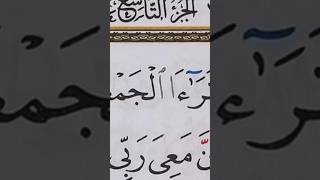 الجزء التاسع
تَرَٰٓءَا ٱلْجَمْعَ
نَّ مَعِيَ رَبِّي